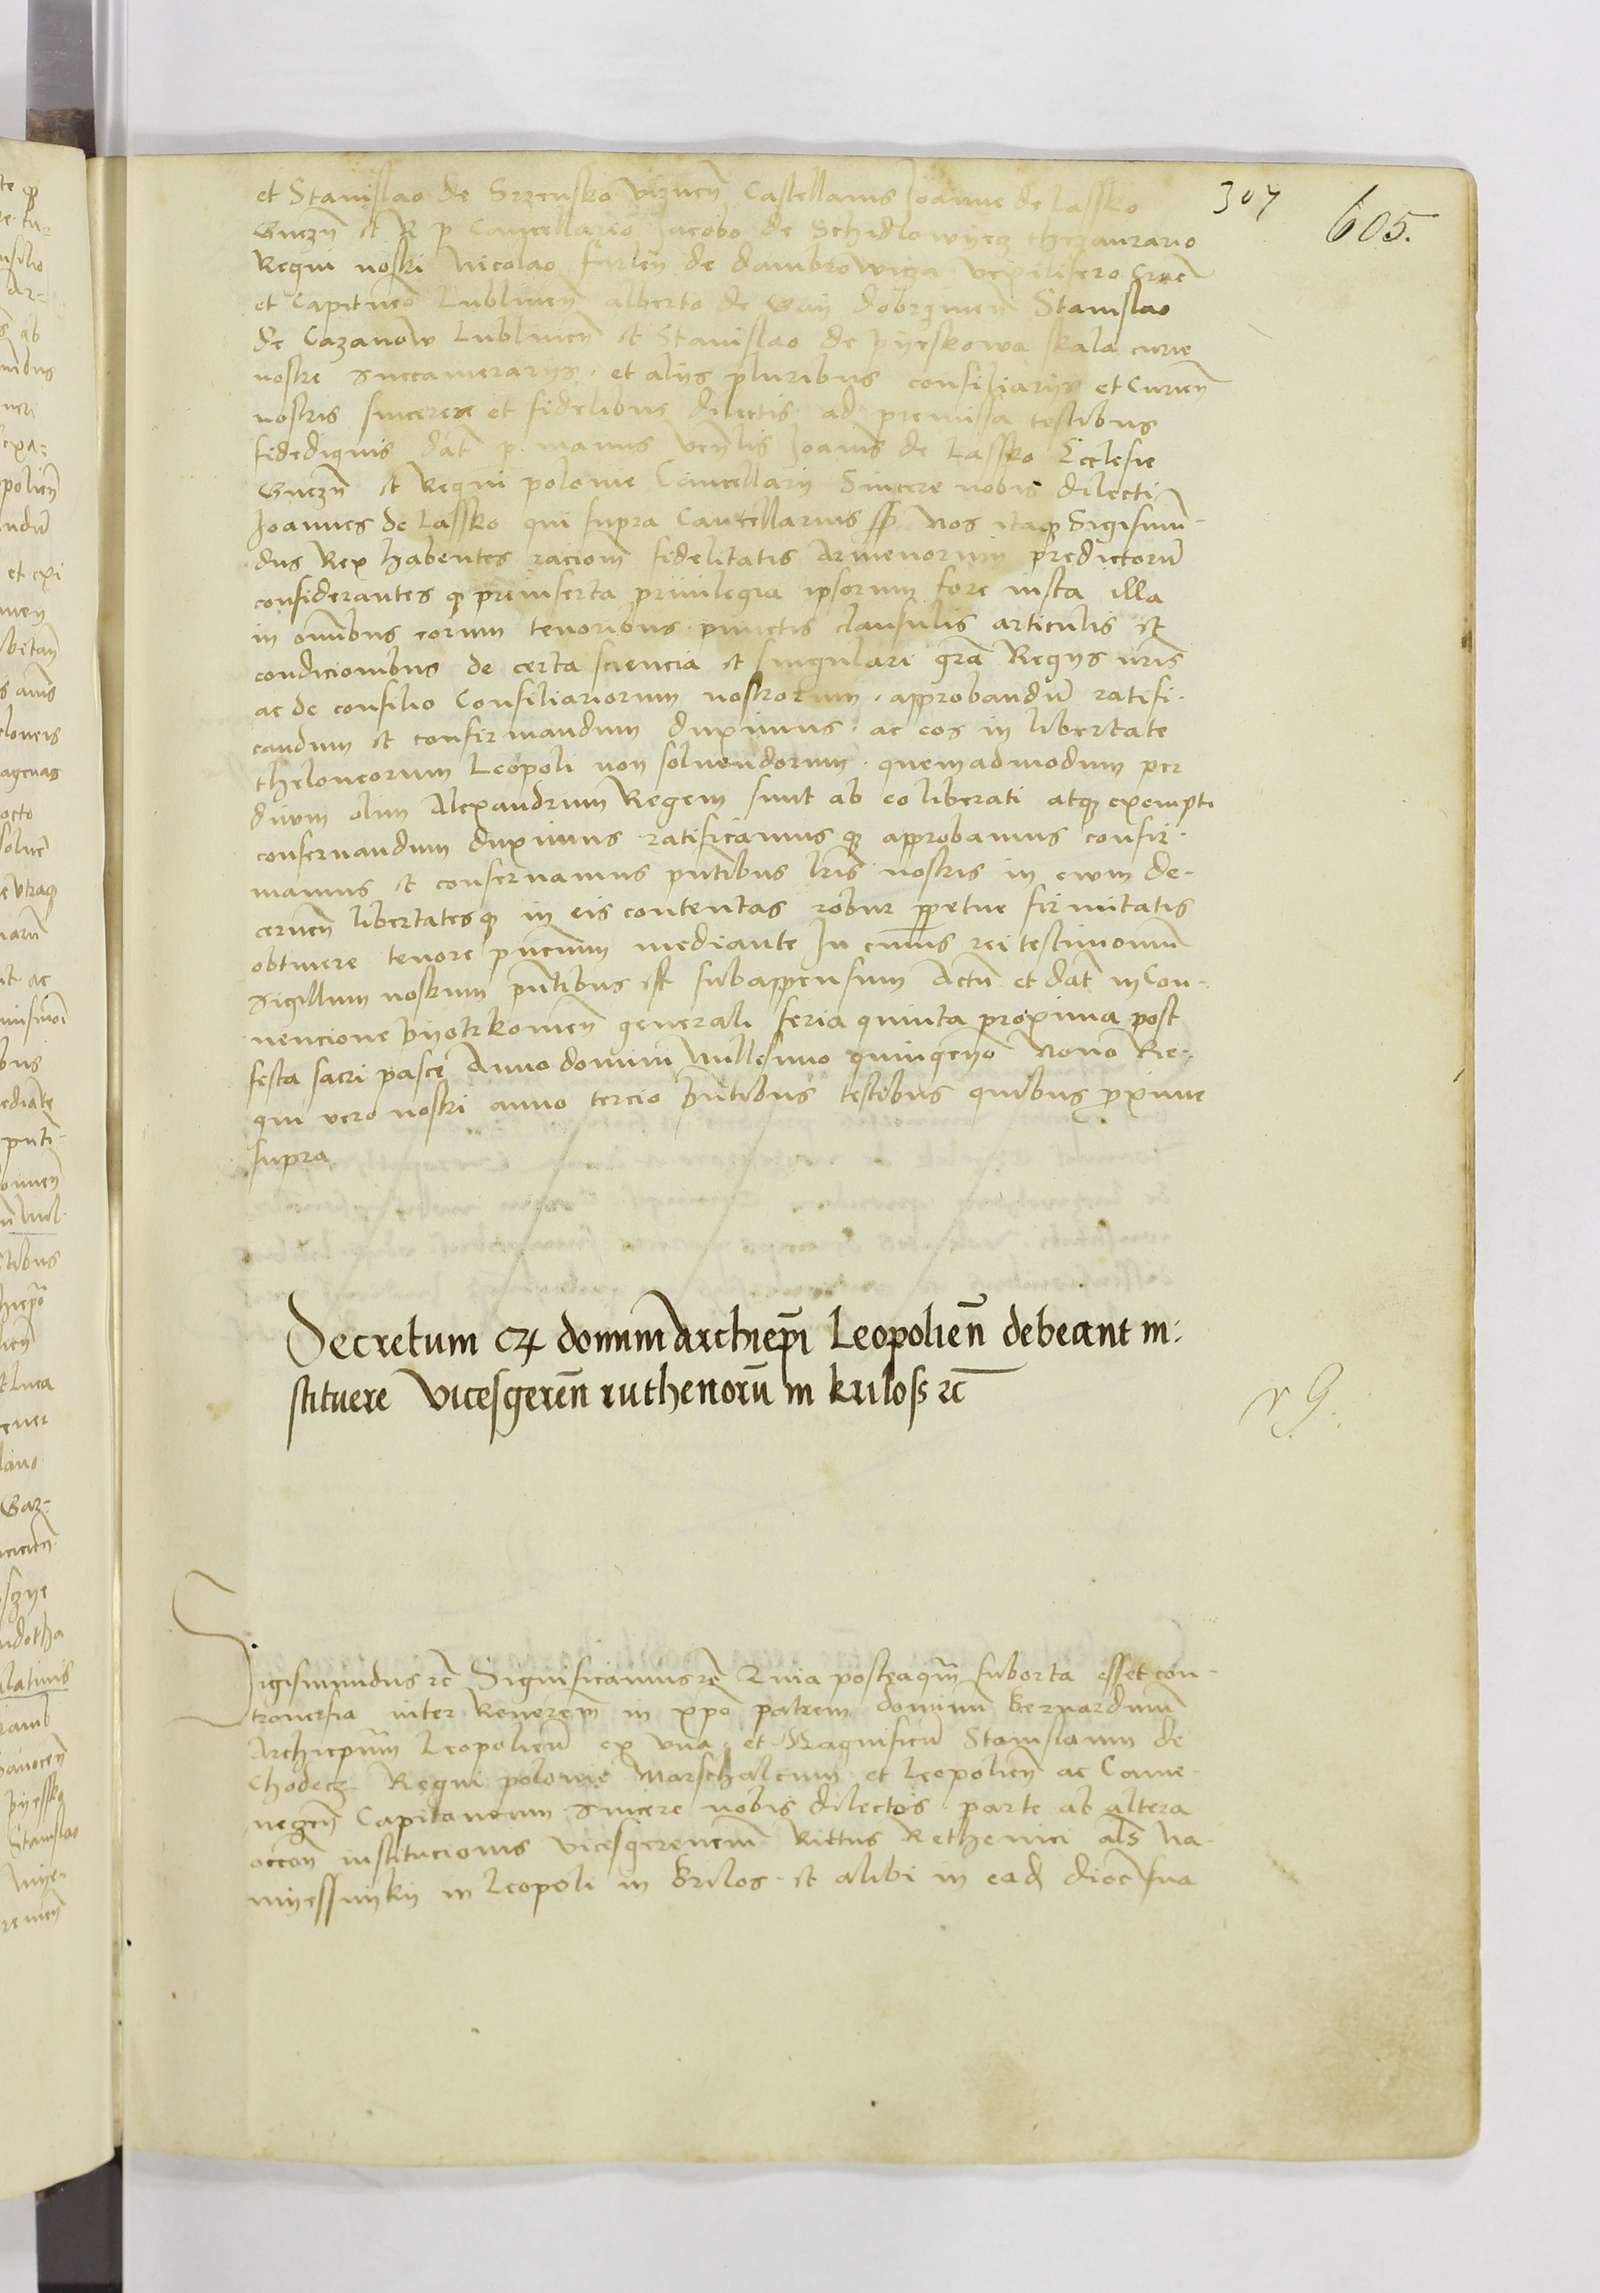 307
605.
et Stanislao de Srzensko viznen̄ Castellanis Joanne de Lassko
Gnezn̄ et R p Cancellario Jacobo de Schidlowyecz thezaurario
Regni nostri Nicolao firley de dambrowicza vexillifero Crac̄
et Capitneo Lublinen̄ alberto de Gay dobrzinen̄ Stanislao
de Cazanow Lublinen̄ et Stanislao de pyeskowa skala curie
nostre Succamerarijs et alijs pluribus consiliarijs et Curien̄
nostris sincere et fidelibus dilectis ad premissa testibus
fidedignis dat̄ p manus ven̄lis Joannis de Lassko Ecclesie
Gnezn̄ et Regni polonie Cancellarij Sincere nobis dilecti
Joannes de Lassko qui supra Cancellarius sst Nos itaqz Sigismun-
dus Rex habentes racionē fidelitatis Armenorum predictorū
considerantes qz preinserta privilegia ipsorum fore iusta illa
in om̄ibus eorum tenoribus punctis clausulis articulis et
condicionibus de certa sciencia et singulari gr̄a Regijs nr̄is
ac de consilio Consiliariorum nostrorum approbandū ratifi-
candum et confirmandum duximus ac eos in libertate
theloneorum Leopoli non soluendorum quemadmodum per
diuum olim Alexandrum Regem sunt ab eo liberati atqz exempti
conseruandum duximus ratificamus qz approbamus confir-
mamus et conseruamus pn̄tibus lr̄is nostris in ewm de-
cernen̄ libertatesqz in eis contentas robur perpetue firmitatis
obtinere tenore pn̄cium mediante In cuius rei testimoniū
Sigillum nostrum pn̄tibus est subappensum Actū et dat̄ in Con-
uencione pyotrkowien̄ generali feria quinta proxima post
festa sacri pasce Anno domini Millesimo quingen̄o Nono Re-
gni vero nostri anno tercio pn̄tibus testibus quibus proxime
supra
Decretum qz domini Archiep̄i Leopolien̄ debeant in-
stituere vicesgeren̄ ruthenorū in kriloss rc̄
r 9.
Sigismundus rc̄ Significamus rc̄ Quia posteaq̄m suborta esset con-
trouersia inter Reuerēm in xp̄o patrem dominū Bernardinū
Archiep̄um Leopolien̄ ex vna et Magnificū Stanislaum de
Chodecz Regni polonie Marschalcum et Leopolien̄ ac Came-
necen̄ Capitaneum Sincere nobis dilectos parte ab altera
occōn institucionis vicesgerencium Rittus Rethenici als̄ Na-
myessnyky in Leopoli in Krilos et alibi in ead dioc̄ sua